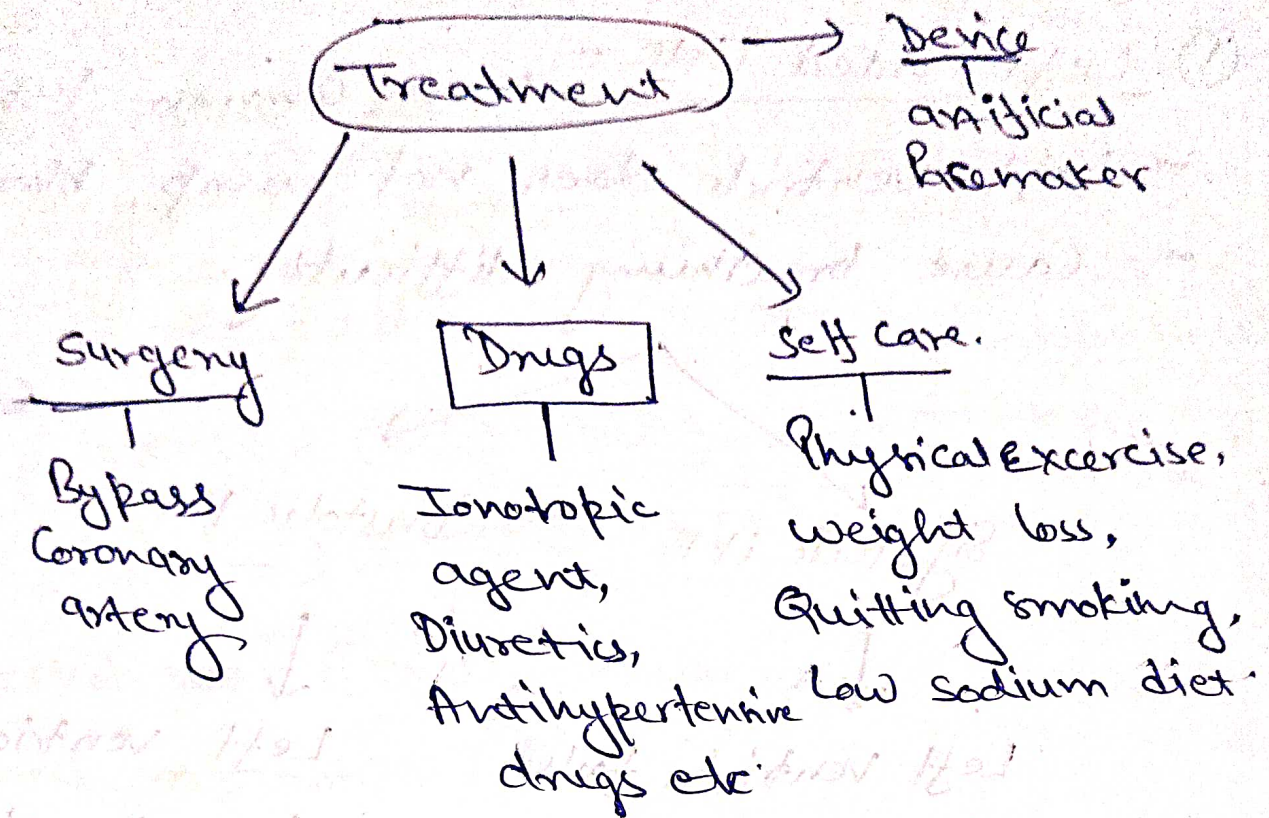 Treatment
Device
artificial
Pacemaker
Surgery
Bypass
Coronary
artery
Drugs
Ionotopic
agent,
Diuretics,
Antihypertensive
drugs etc.
Self Care.
Physical Excercise,
weight loss,
Quitting smoking,
Low sodium diet.